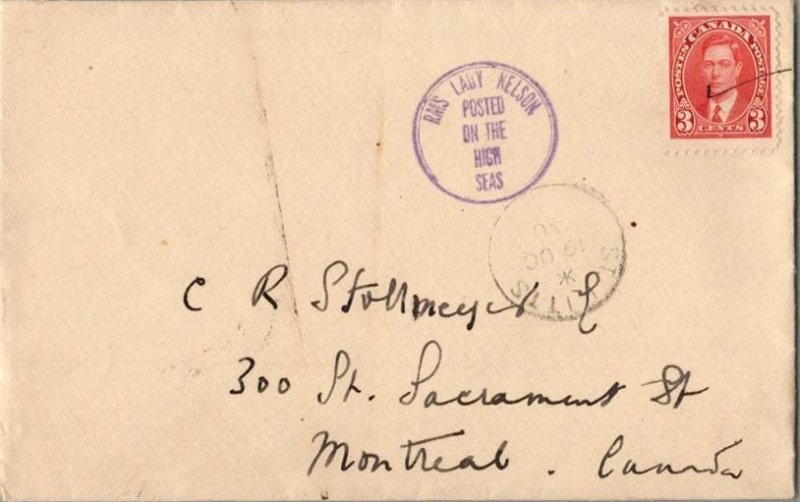 POSTES CANADA POSTAGE
3 CENTS 3
RMS LADY NELSON
POSTED
ON THE
HIGH
SEAS
ST. KITTS
*
19 OC
C R Stollmeyer
300 St. Sacrament St
Montreal . Canada